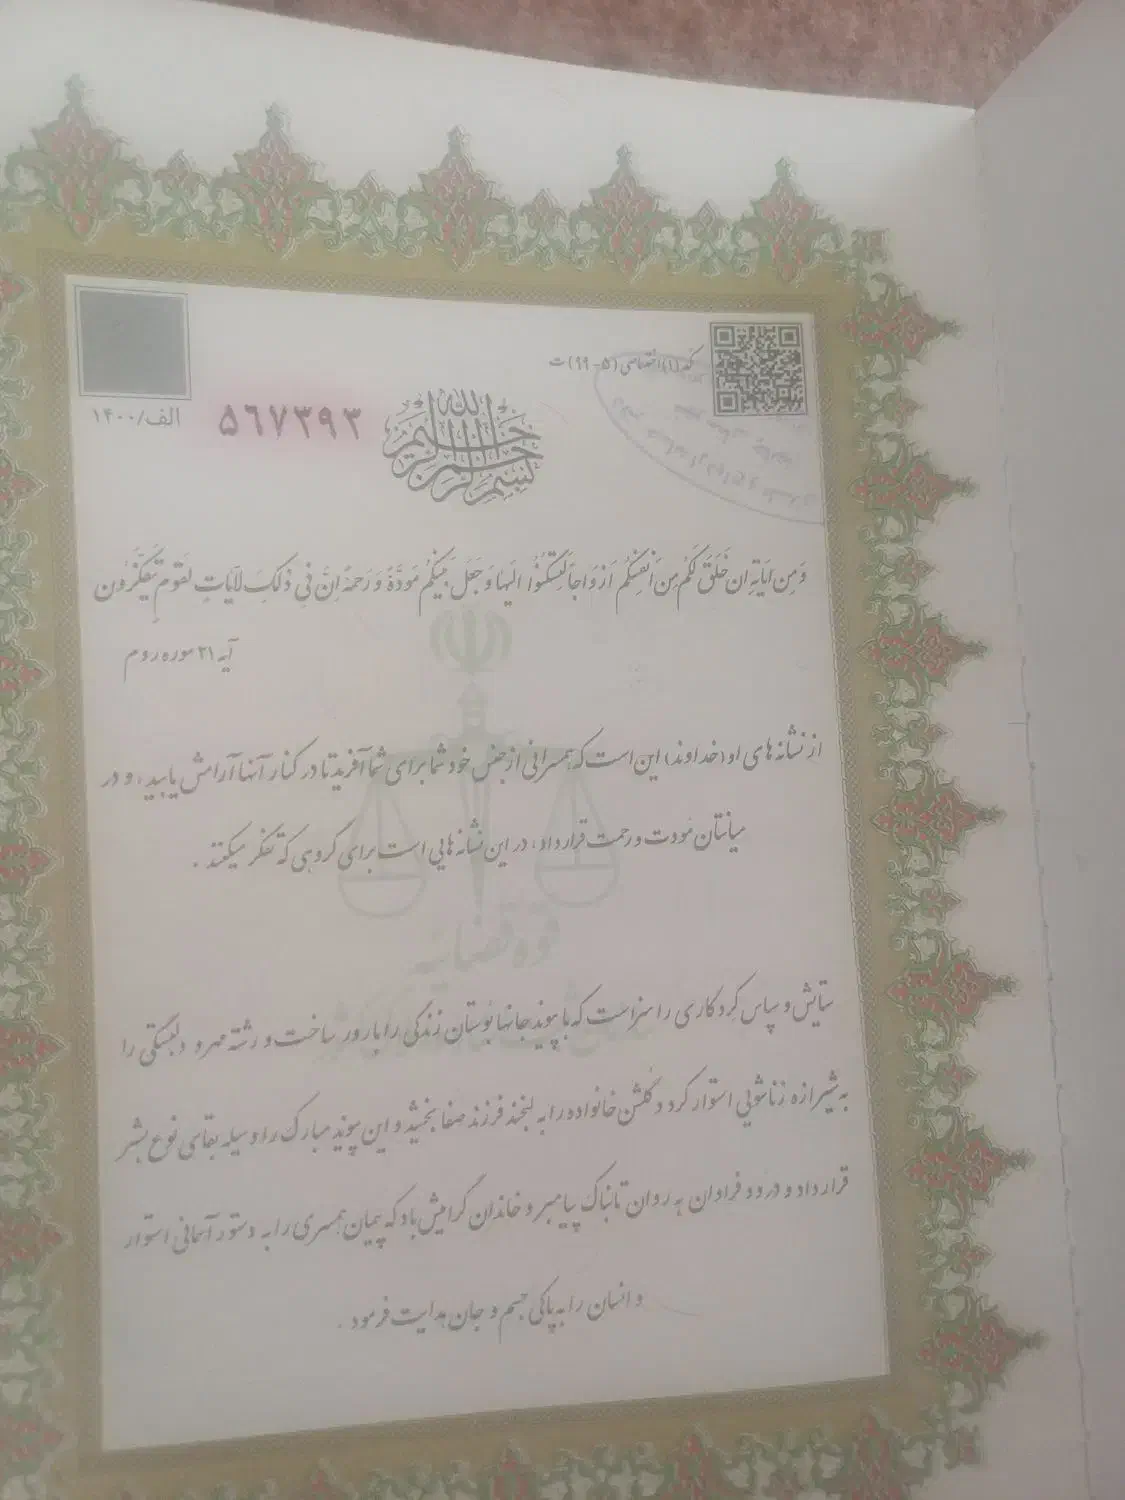 کد (۱) اختصاصی (۵-۹۹) ت
الف/۱۴۰۰
۵۶۷۳۹۳
بسم الله الرحمن الرحیم
وَمِن ایَاتِهِ ان خَلَقَ لَکُم مِنَ اَنفُسِکُم اَزوَاجاً لِتَسکُنُوُا الَیها وَ جَعَلَ بَینَکُم مَوَدَّةً وَ رَحمَةً اِنَّ فِی ذلِکَ لَآیَاتٍ لِقَومٍ یَتَفَکَّرُون
آیه ۲۱ سوره روم
از نشانه های او (خداوند) این است که همسرانی از جنس خود شما برای شما آفرید تا در کنار آنها آرامش یابید، و در
میانتان مودت و رحمت قرار داد، در این نشانه هایی است برای گروهی که تفکر میکنند.
قوه قضائیه
ستایش و سپاس کردگاری را سزاست که با پیوند جانها بوستان زندگی را بارور ساخت و رشته مهر و دلبستگی را
به شیرازه زناشویی استوار کرد و گلشن خانواده را به لبخند فرزند صفا بخشید و این پیوند مبارک را وسیله بقای نوع بشر
قرار داد و درود فراوان به روان تابناک پیامبر و خاندان گرامیش باد که پیمان همسری را به دستور آسمانی استوار
و انسان را به پاکی جسم و جان هدایت فرمود.